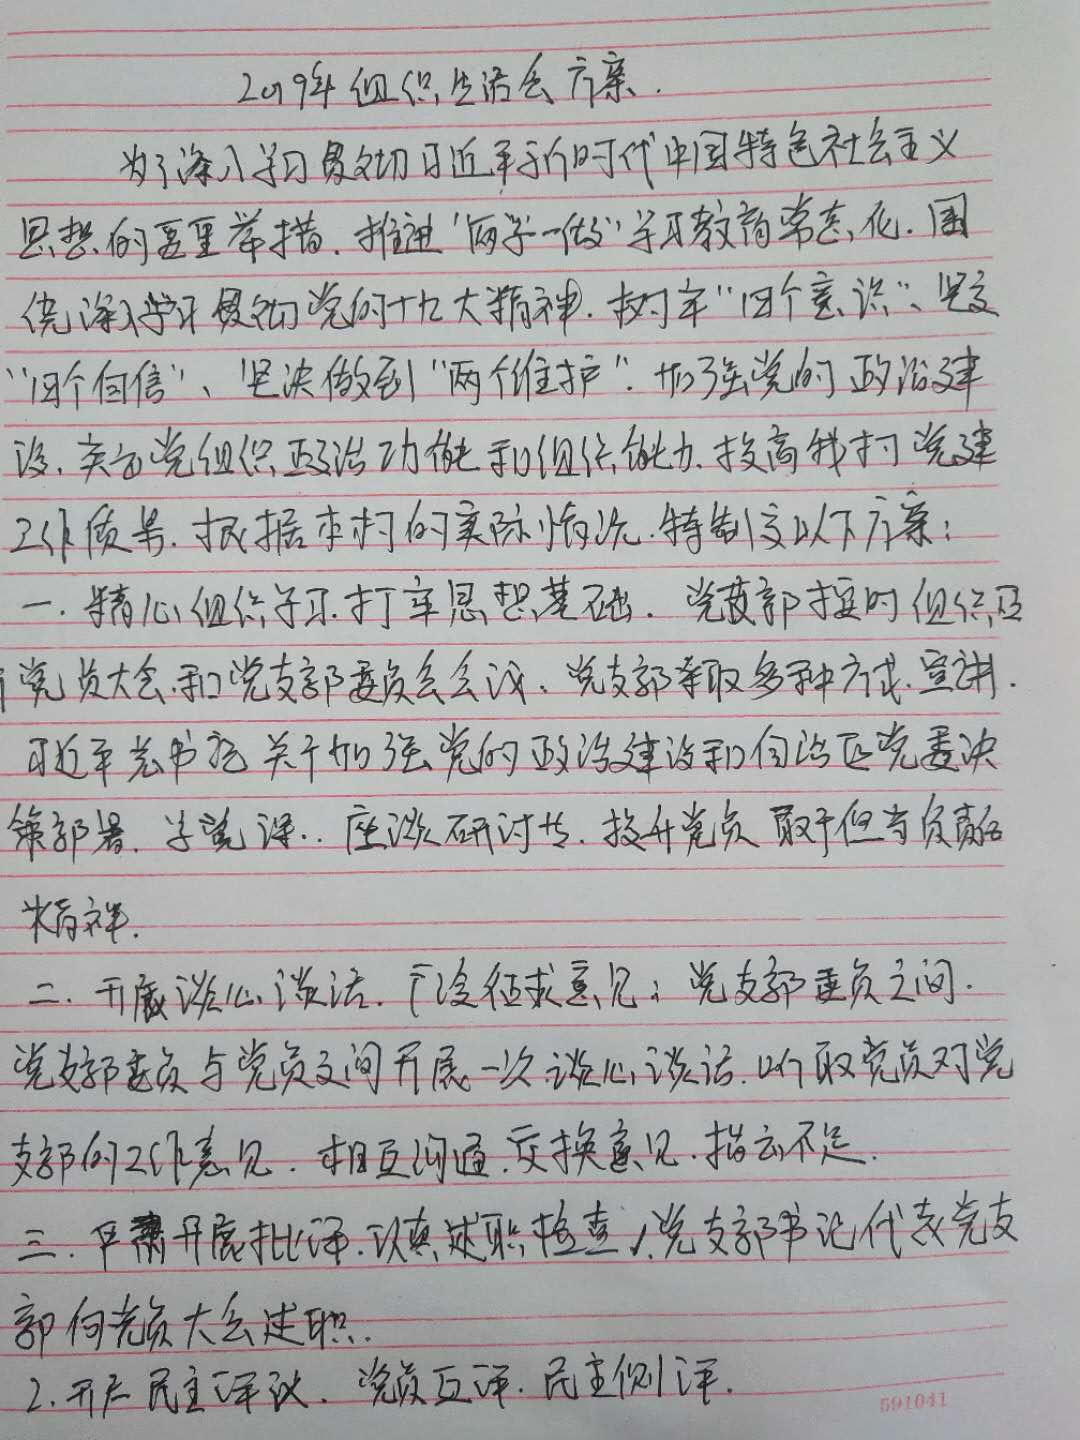 2019年组织生活会方案.
为了深入学习贯彻习近平新时代中国特色社会主义
思想的重要举措.推进"两学一做"学习教育常态化.围
绕深入学习贯彻党的十九大精神.树牢"四个意识"、坚定
"四个自信"、坚决做到"两个维护".加强党的政治建
设.突出党组织政治功能和组织能力.提高我村党建
工作质量.根据本村的实际情况.特制定以下方案:
一.精心组织学习.打牢思想基础.党支部按时组织召
开党员大会和党支部委员会会议、党支部采取多种方式.宣讲.
习近平总书记关于加强党的政治建设和自治区党委决
策部署.学党课..座谈研讨也.提升党员敢于但当负责的
精神.
二.开展谈心谈话.广泛征求意见;党支部委员之间.
党支部委员与党员之间开展一次谈心谈话.听取党员对党
支部的工作意见.相互沟通.交换意见.指出不足.
三.严肃开展批评.认真述职检查1.党支部书记代表党支
部向党员大会述职.
2.开展民主评议.党员互评.民主侧评.
591041